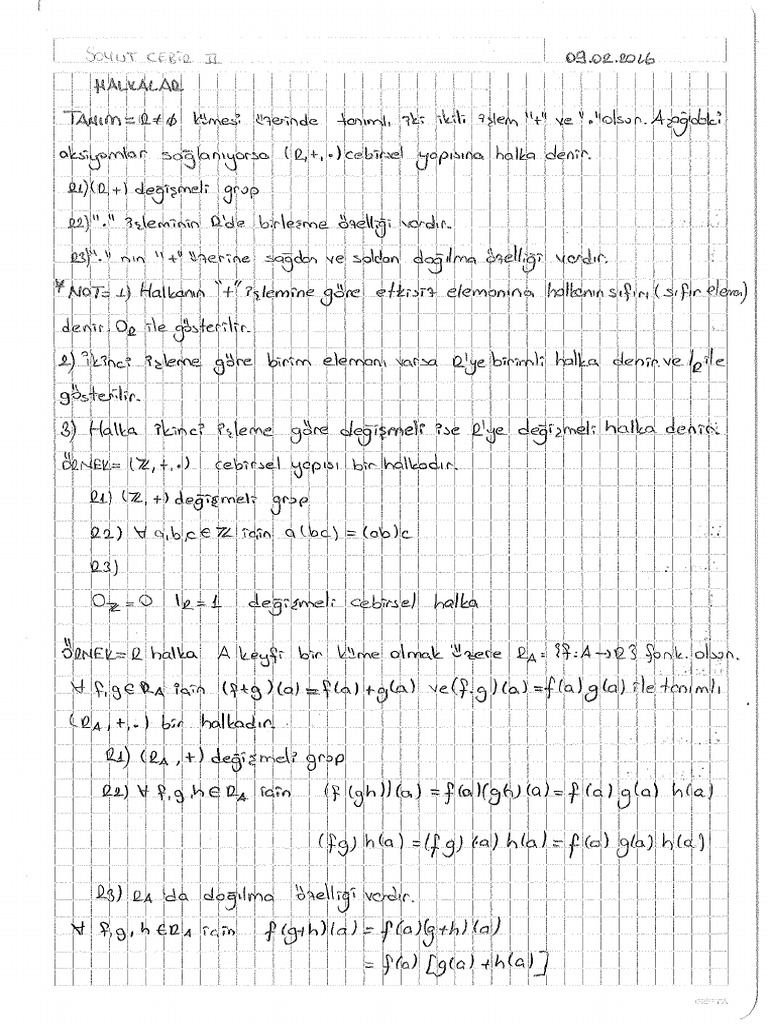 SOYUT CEBİR II 09.02.2016
HALKALAR
TANIM= R≠∅ kümesi üzerinde tanımlı iki ikili işlem "+" ve "." olsun. Aşağıdaki
aksiyomlar sağlanıyorsa (R,+,.) cebirsel yapısına halka denir.
R1) (R,+) değişmeli grup
R2) "." işleminin R'de birleşme özelliği vardır.
R3) "." nın "+" üzerine sağdan ve soldan dağılma özelliği vardır.
* NOT= 1) Halkanın "+" işlemine göre etkisiz elemanına halkanın sıfırı (sıfır elemanı)
denir. 0R ile gösterilir.
2) İkinci işleme göre birim elemanı varsa R'ye birimli halka denir. ve 1R ile
gösterilir.
3) Halka ikinci işleme göre değişmeli ise R'ye değişmeli halka denir.
ÖRNEK= (ℤ,+,.) cebirsel yapısı bir halkadır.
R1) (ℤ,+) değişmeli grup
R2) ∀ a,b,c∈ℤ için a(bc) = (ab)c
R3)
0ℤ=0 1R=1 değişmeli cebirsel halka
ÖRNEK= R halka A keyfi bir küme olmak üzere RA= {f:A→R} fonk. olsun.
∀ f,g∈RA için (f+g)(a)=f(a)+g(a) ve (f.g)(a)=f(a)g(a) ile tanımlı
(RA,+,.) bir halkadır.
R1) (RA,+) değişmeli grup
R2) ∀ f,g,h∈RA için (f(gh))(a) = f(a)(gh)(a) = f(a) g(a) h(a)
(fg)h(a) = (fg)(a) h(a) = f(a) g(a) h(a)
R3) RA'da dağılma özelliği vardır.
∀ f,g,h∈RA için f(g+h)(a) = f(a)(g+h)(a)
= f(a) [g(a)+h(a)]